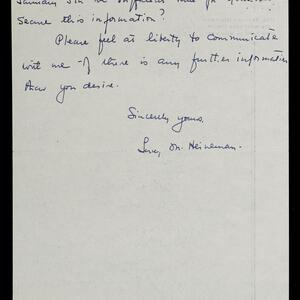 secure this information?
Please feel at liberty to communicate
with me if there is any further information
you desire.
Sincerely yours,
M. Heineman.